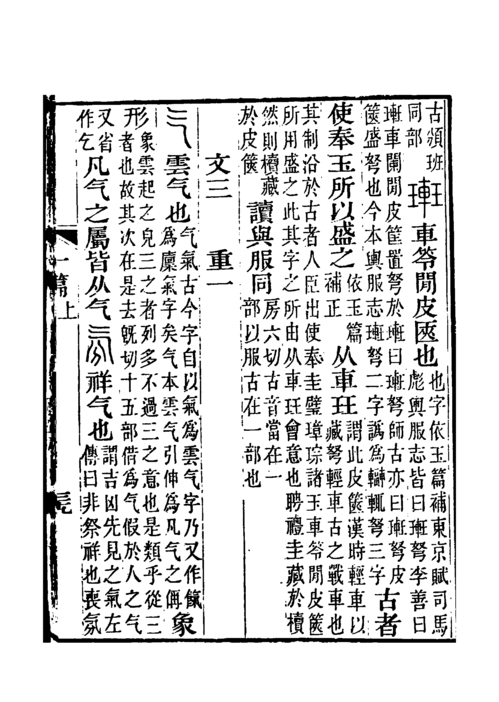 古頒班
同部
𤦲車笭閒皮匧也
也字依玉篇補東京賦司馬
彪輿服志皆曰𤦲弩李善曰
𤦲車闌閒皮筐置弩於𤦲曰𤦲弩師古亦曰𤦲弩皮
篋盛弩也今本輿服志𤦲弩二字譌爲轓輒弩三字
古者
使奉玉所以盛之
依玉篇
補正
从車玨
謂此皮篋漢時輕車以
藏弩輕車古之戰車也
其制沿於古者人臣出使奉圭璧璋琮諸玉車笭閒皮篋
所用盛之此其字之所由从車玨會意也聘禮圭藏於櫝
然則櫝藏
於皮篋
讀與服同
房六切古音當在一
部以服古在一部也
文三　重一
气雲气也
气氣古今字自以氣爲雲气字乃又作餼
爲廩氣字矣气本雲气引伸爲凡气之偁
象
形
象雲起之皃三之者列多不過三之意也是類乎從三
者也故其次在是去旣切十五部借爲气假於人之气
又省
作乞
凡气之屬皆从气
氛祥气也
謂吉凶先見之氣左
傳曰非祭祥也喪氛
一篇上